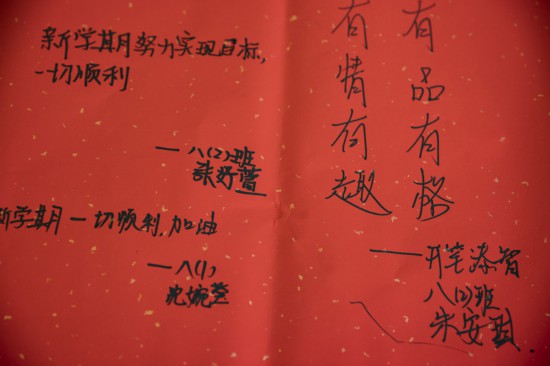 新学期努力实现目标,
一切顺利
——八(2)班
新学期一切顺利,加油
——八(1)
有品有格
有情有趣
——开笔添智
八(2)班
朱安